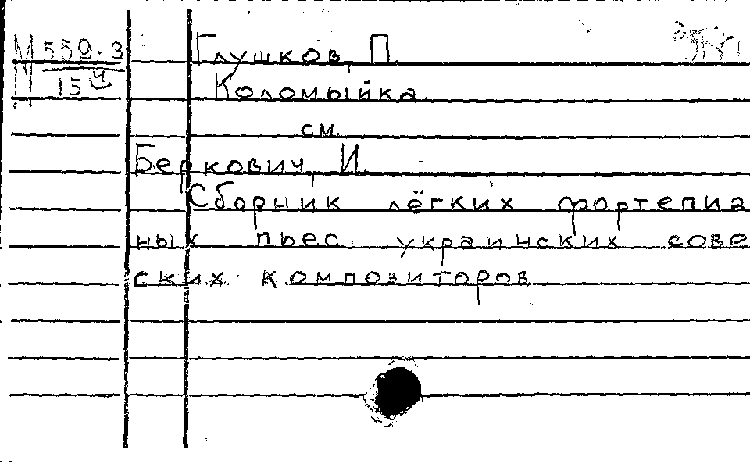 М 559.3
15
Глушков, П.
Коломыйка
см.
Беркович, И.
Сборник лёгких фортепиа
ных пьес украинских сове
ских композиторов